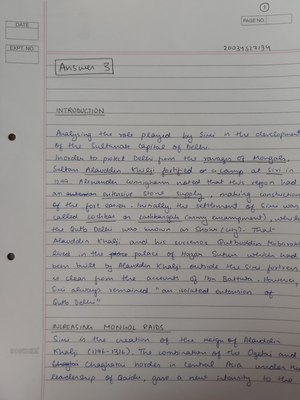 1
PAGE NO.
DATE
EXPT. NO.
20034517134
Answer 3
INTRODUCTION
Analysing the role played by Siri in the development
of the Sultanate Capital of Delhi.
Inorder to protect Delhi from the ravages of Mongols,
Sultan Alauddin Khilji fortified a camp at Siri in
Alexander Cunnigham noted that this region had
an extensive stone supply, making construction
of the fort easier. Initially the settlement of Siri was
called lashkar or lashkargah (army encampment), while
the Qutb Delhi was known as Shahr (city). That
Alauddin Khalji and his successor Qutbuddin Mubarak
lived in the palace of Hazar Sutun which had
been built by Alauddin Khalji outside the Siri fortress
is clear from the accounts of Ibn Battuta. However,
Siri always remained "an isolated extension of
Qutb Delhi"
INCREASING MONGOL RAIDS
Siri is the creation of the reign of Alauddin
Khalji (1296-1316). The combination of the Ogetai and
Chaghatai hordes in central Asia under the
leadership of Qaidu, gave a new intensity to the